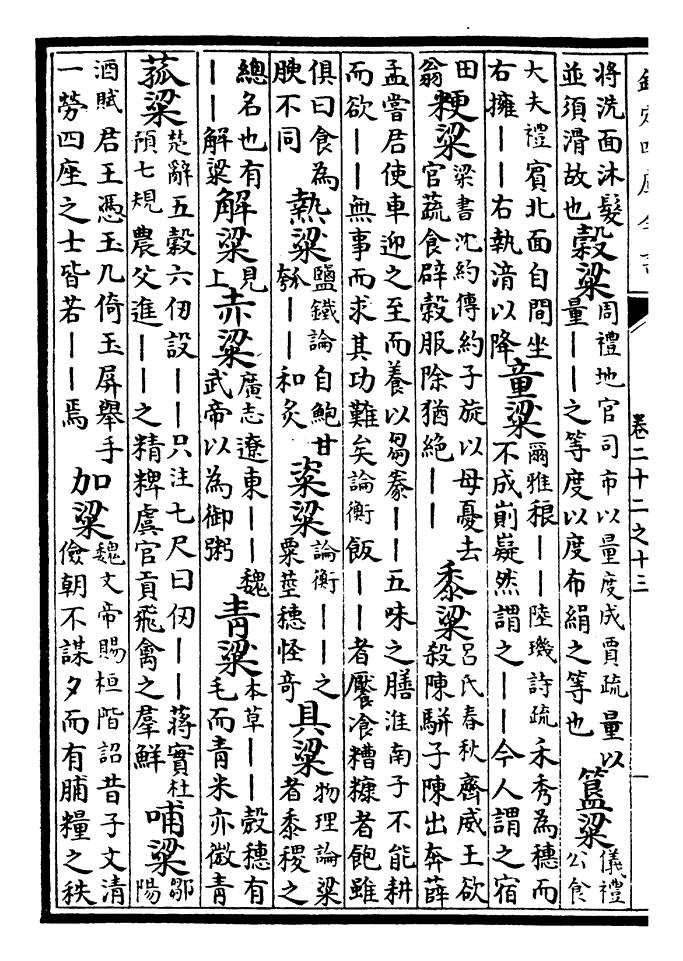 欽定四庫全書 卷二十二之十三 一
將洗面沐髮
並須滑故也
榖粱
周禮地官司市以量度成賈疏量以
量——之等度以度布絹之等也
簋粱
儀禮
公食
大夫禮賓北面自間坐
右擁——右執湇以降
童粱
爾雅稂——陸璣詩疏禾秀為穗而
不成崱嶷然謂之——今人謂之宿
田
翁
粳粱
梁書沈約傳約子旋以母憂去
官蔬食辟穀服除猶絶——
黍粱
呂氏春秋齊威王欲
殺陳騈子陳出奔薛
孟嘗君使車迎之至而養以芻豢——五味之膳淮南子不能耕
而欲——無事而求其功難矣論衡飯——者饜飡糟糠者飽雖
俱曰食為
腴不同
熱粱
鹽鐵論自鮑甘
瓠——和炙
粢粱
論衡——之
粟莖穗怪奇
具粱
物理論粱
者黍稷之
總名也有
——解粱
解粱
見
上
赤粱
廣志遼東——魏
武帝以為御粥
青粱
本草——殼穗有
毛而青米亦微青
菰粱
楚辭五穀六仞設——只注七尺曰仞——蔣實杜
預七規農父進——之精粺虞官貢飛禽之羣鮮
哺粱
鄒
陽
酒賦君王憑玉几倚玉屏舉手
一勞四座之士皆若——焉
加粱
魏文帝賜桓階詔昔子文清
儉朝不謀夕而有脯糧之秩